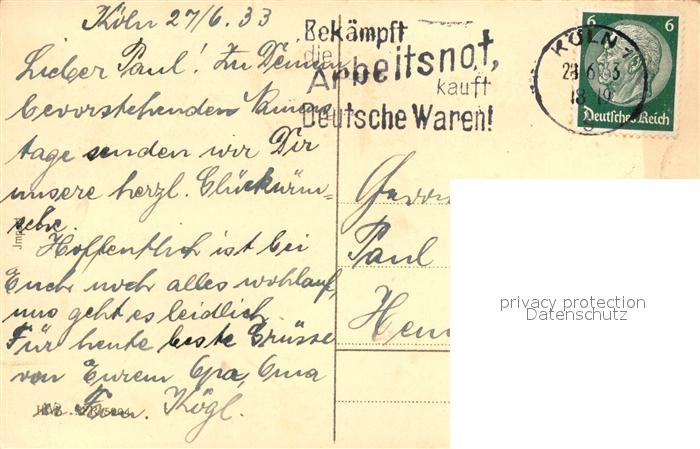 Köln 27/6.33
Lieber Paul! Zu Deinem
bevorstehenden Namens
tage senden wir Dir
unsere herzl. Glückwün-
sche.
Hoffentlich ist bei
Euch noch alles wohlauf,
uns geht es leidlich.
Für heute beste Grüsse
von Eurem Opa, Oma
Fam. Kögl.
Bekämpft
die
Arbeitsnot,
kauft
Deutsche Waren!
KÖLN
18-19
6 6
Deutsches Reich
Paul
privacy protection
Datenschutz